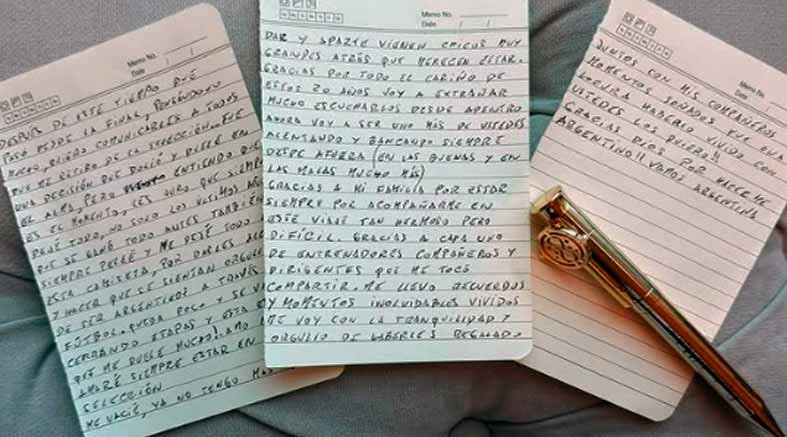 Memo No.
Date / /
DESPUÉS DE ESTE TIEMPO QUE
PASÓ DESDE LA FINAL, PENSÁNDOLO
MUCHO, QUIERO COMUNICARLES A TODOS
QUE ME RETIRO DE LA SELECCIÓN. FUE
UNA DECISIÓN QUE DOLIÓ Y DUELE EN
EL ALMA, PERO ENTIENDO QUE
ES EL MOMENTO, LES JURO QUE SIEMPRE
DEJÉ TODO, NO SOLO LOS ÚLTIMOS AÑOS
QUE SE GANÓ TODO ANTES TAMBIÉN
SIEMPRE PELEÉ Y ME DEJÉ TODO
ESTA CAMISETA, POR DARLES ALE
Y HACER QUE SE SIENTAN ORGULL
DE SER ARGENTINOS A TRAVÉS
FÚTBOL. QUEDA POCO Y SE VA
CERRANDO ETAPAS Y ESTA E
QUE ME DUELE MUCHO! AMO
AMARÉ SIEMPRE ESTAR EN
SELECCIÓN
ME VACIÉ, YA NO TENGO MÁS
Memo No.
Date / /
DAR Y APARTE VIENEN CHICOS MUY
GRANDES ATRÁS QUE MERECEN ESTAR.
GRACIAS POR TODO EL CARIÑO DE
ESTOS 20 AÑOS VOY A EXTRAÑAR
MUCHO ESCUCHARLOS DESDE ADENTRO
AHORA VOY A SER UNO MÁS DE USTEDES
ALENTANDO Y BANCANDO SIEMPRE
DESDE AFUERA (EN LAS BUENAS Y EN
LAS MALAS MUCHO MÁS)
GRACIAS A MI FAMILIA POR ESTAR
SIEMPRE POR ACOMPAÑARME EN
ESTE VIAJE TAN HERMOSO PERO
DIFÍCIL. GRACIAS A CADA UNO
DE ENTRENADORES COMPAÑEROS Y
DIRIGENTES QUE ME TOCÓ
COMPARTIR. ME LLEVO RECUERDOS
Y MOMENTOS INOLVIDABLES VIVIDOS
ME VOY CON LA TRANQUILIDAD Y
ORGULLO DE HABERLES REGALADO
Memo No.
Date / /
JUNTOS CON MIS COMPAÑEROS
MOMENTOS SOÑADOS FUE UNA
LOCURA HABERLO VIVIDO CON
USTEDES LOS QUIERO!!
GRACIAS DIOS POR HACERME
ARGENTINO!! VAMOS ARGENTINA